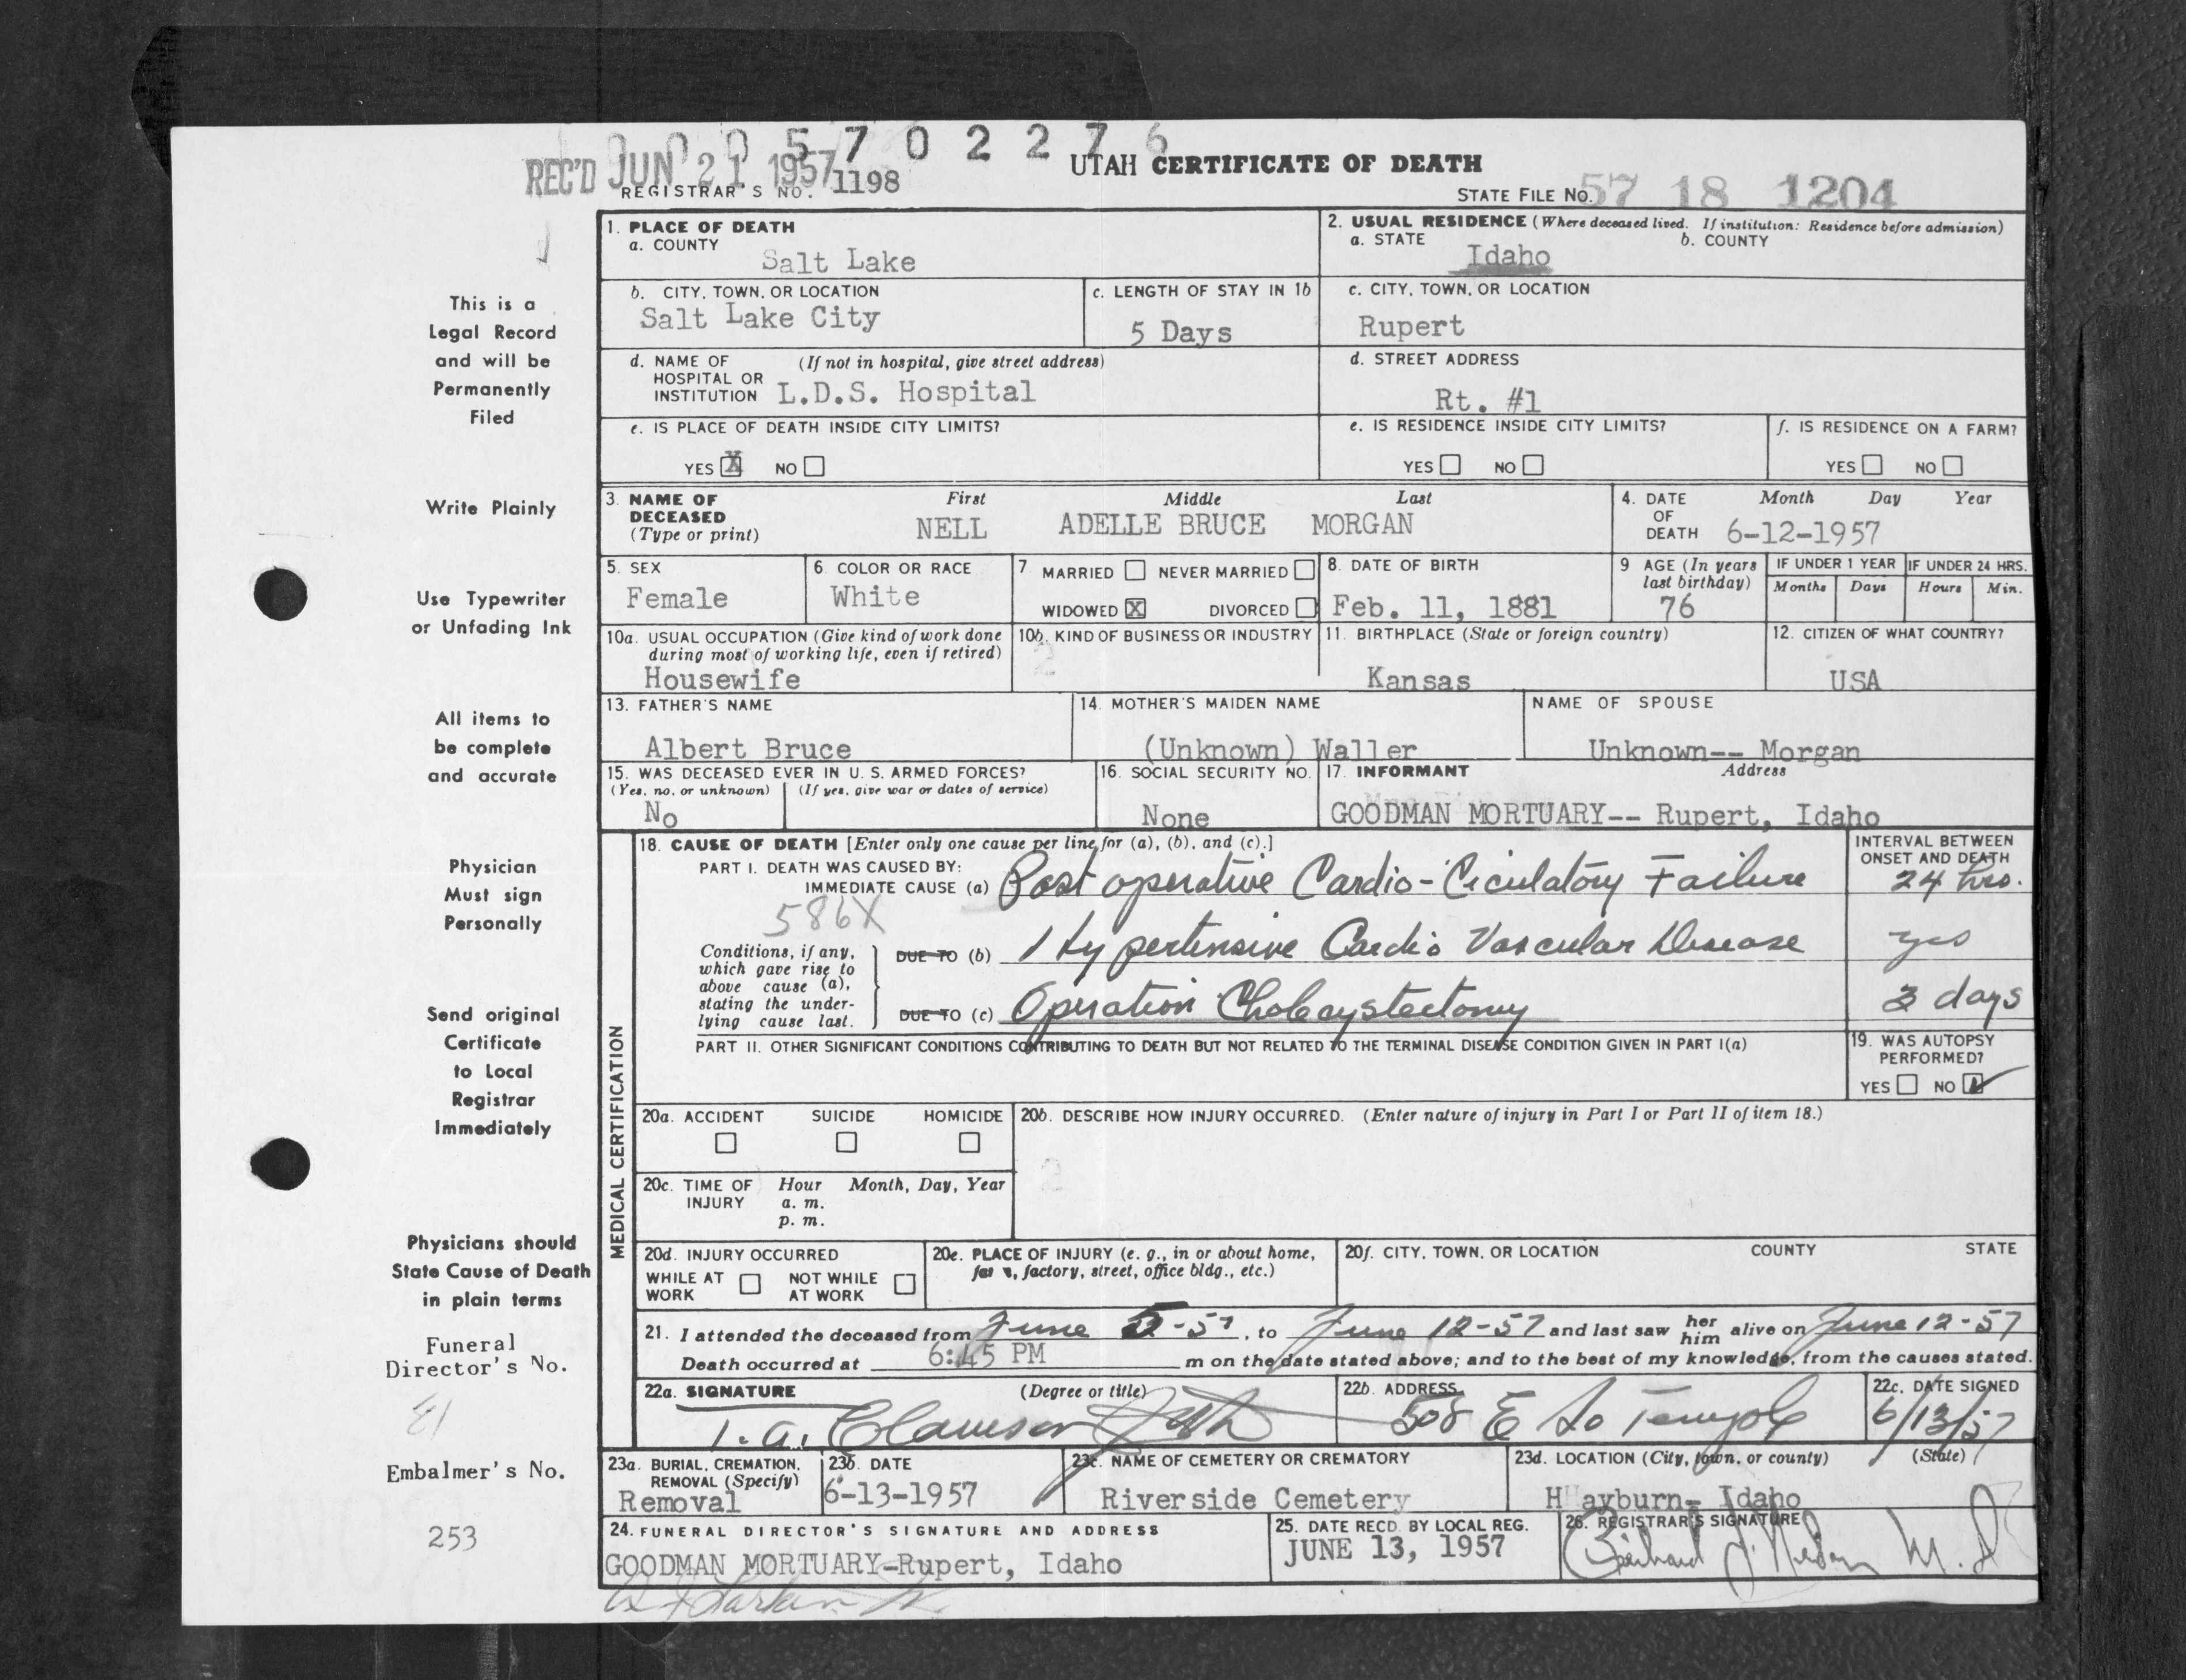 0 0 0 5 7 0 2 2 7 6
REC'D JUN 21 1957
UTAH CERTIFICATE OF DEATH
REGISTRAR'S NO. 1198
STATE FILE NO. 57 18 1204
1. PLACE OF DEATH
a. COUNTY
Salt Lake
2. USUAL RESIDENCE (Where deceased lived. If institution: Residence before admission)
a. STATE b. COUNTY
Idaho
b. CITY, TOWN, OR LOCATION
Salt Lake City
c. LENGTH OF STAY IN 1b
5 Days
c. CITY, TOWN, OR LOCATION
Rupert
d. NAME OF (If not in hospital, give street address)
HOSPITAL OR
INSTITUTION L.D.S. Hospital
d. STREET ADDRESS
Rt. #1
e. IS PLACE OF DEATH INSIDE CITY LIMITS?
YES X NO
e. IS RESIDENCE INSIDE CITY LIMITS?
YES NO
f. IS RESIDENCE ON A FARM?
YES NO
3. NAME OF DECEASED (Type or print)
First Middle Last
NELL ADELLE BRUCE MORGAN
4. DATE OF DEATH
Month Day Year
6-12-1957
5. SEX
Female
6 COLOR OR RACE
White
7 MARRIED NEVER MARRIED
WIDOWED X DIVORCED
8. DATE OF BIRTH
Feb. 11, 1881
9 AGE (In years last birthday)
76
IF UNDER 1 YEAR
Months Days
IF UNDER 24 HRS.
Hours Min.
10a. USUAL OCCUPATION (Give kind of work done
during most of working life, even if retired)
Housewife
10b. KIND OF BUSINESS OR INDUSTRY
2
11. BIRTHPLACE (State or foreign country)
Kansas
12. CITIZEN OF WHAT COUNTRY?
USA
13. FATHER'S NAME
Albert Bruce
14. MOTHER'S MAIDEN NAME
(Unknown) Waller
NAME OF SPOUSE
Unknown-- Morgan
15. WAS DECEASED EVER IN U. S. ARMED FORCES?
(Yes, no, or unknown) (If yes, give war or dates of service)
No
16. SOCIAL SECURITY NO.
None
17. INFORMANT Address
GOODMAN MORTUARY-- Rupert, Idaho
MEDICAL CERTIFICATION
18. CAUSE OF DEATH [Enter only one cause per line for (a), (b), and (c).]
INTERVAL BETWEEN
ONSET AND DEATH
PART I. DEATH WAS CAUSED BY:
IMMEDIATE CAUSE (a) Post operative Cardio-Ciculatory Failure 24 hrs.
586X
Conditions, if any,
which gave rise to
above cause (a),
stating the under-
lying cause last.
DUE TO (b) Hypertensive Cardio Vascular Disease yrs
DUE TO (c) Operation Cholecystectomy 3 days
PART II. OTHER SIGNIFICANT CONDITIONS CONTRIBUTING TO DEATH BUT NOT RELATED TO THE TERMINAL DISEASE CONDITION GIVEN IN PART I(a)
19. WAS AUTOPSY
PERFORMED?
YES NO
20a. ACCIDENT SUICIDE HOMICIDE
20b. DESCRIBE HOW INJURY OCCURRED. (Enter nature of injury in Part I or Part II of item 18.)
2
20c. TIME OF Hour Month, Day, Year
INJURY a. m.
p. m.
20d. INJURY OCCURRED
WHILE AT WORK NOT WHILE AT WORK
20e. PLACE OF INJURY (e. g., in or about home,
factory, street, office bldg., etc.)
20f. CITY, TOWN, OR LOCATION COUNTY STATE
21. I attended the deceased from June 5-57, to June 12-57 and last saw her him alive on June 12-57
Death occurred at 6:45 PM m on the date stated above; and to the best of my knowledge, from the causes stated.
22a. SIGNATURE (Degree or title)
T. A. Clawson
22b. ADDRESS
508 E So Temple
22c. DATE SIGNED
6/13/57
23a. BURIAL, CREMATION,
REMOVAL (Specify)
Removal
23b. DATE
6-13-1957
23c. NAME OF CEMETERY OR CREMATORY
Riverside Cemetery
23d. LOCATION (City, town, or county) (State)
H ayburn- Idaho
24. FUNERAL DIRECTOR'S SIGNATURE AND ADDRESS
GOODMAN MORTUARY-Rupert, Idaho
25. DATE RECD. BY LOCAL REG.
JUNE 13, 1957
26. REGISTRAR'S SIGNATURE
M.D.
This is a
Legal Record
and will be
Permanently
Filed
Write Plainly
Use Typewriter
or Unfading Ink
All items to
be complete
and accurate
Physician
Must sign
Personally
Send original
Certificate
to Local
Registrar
Immediately
Physicians should
State Cause of Death
in plain terms
Funeral
Director's No.
Embalmer's No.
253